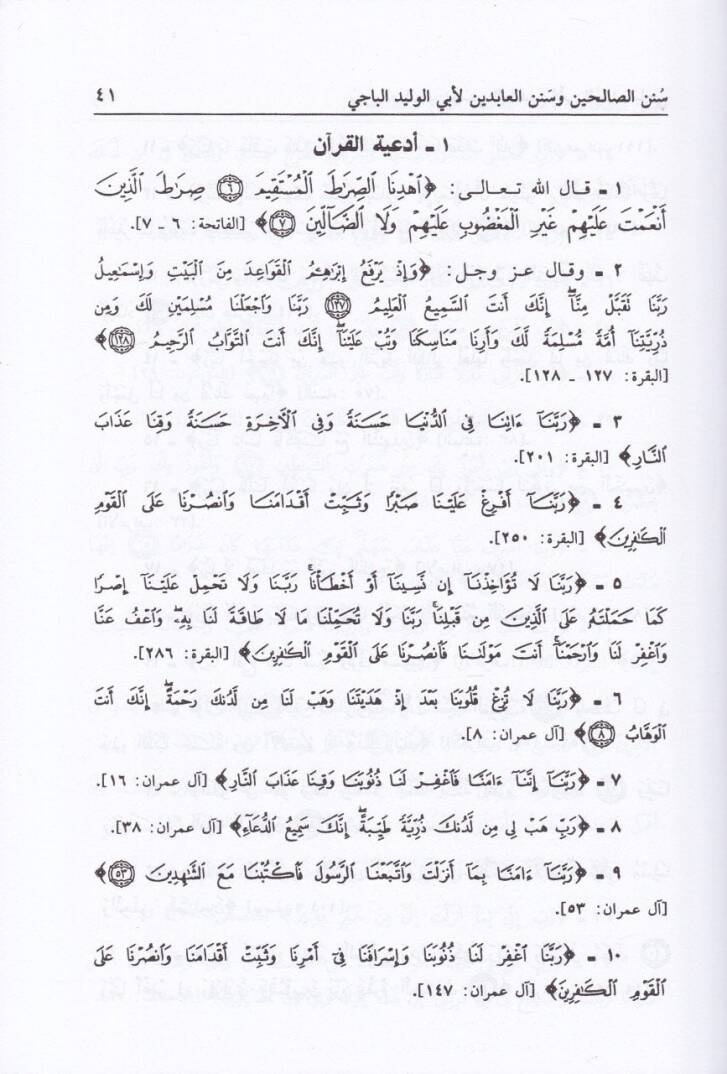 سُنن الصالحين وسَنن العابدين لأبي الوليد الباجي ٤١
١ ـ أدعية القرآن
١ ـ قال الله تعالى: ﴿ٱهْدِنَا ٱلصِّرَٰطَ ٱلْمُسْتَقِيمَ ۝٦ صِرَٰطَ ٱلَّذِينَ
أَنْعَمْتَ عَلَيْهِمْ غَيْرِ ٱلْمَغْضُوبِ عَلَيْهِمْ وَلَا ٱلضَّآلِّينَ ۝٧﴾ [الفاتحة: ٦ ـ ٧].
٢ ـ وقال عز وجل: ﴿وَإِذْ يَرْفَعُ إِبْرَٰهِـۧمُ ٱلْقَوَاعِدَ مِنَ ٱلْبَيْتِ وَإِسْمَٰعِيلُ
رَبَّنَا تَقَبَّلْ مِنَّآ ۖ إِنَّكَ أَنتَ ٱلسَّمِيعُ ٱلْعَلِيمُ ۝١٢٧ رَبَّنَا وَٱجْعَلْنَا مُسْلِمَيْنِ لَكَ وَمِن
ذُرِّيَّتِنَآ أُمَّةً مُّسْلِمَةً لَّكَ وَأَرِنَا مَنَاسِكَنَا وَتُبْ عَلَيْنَآ ۖ إِنَّكَ أَنتَ ٱلتَّوَّابُ ٱلرَّحِيمُ ۝١٢٨﴾
[البقرة: ١٢٧ ـ ١٢٨].
٣ ـ ﴿رَبَّنَآ ءَاتِنَا فِى ٱلدُّنْيَا حَسَنَةً وَفِى ٱلْـَٔاخِرَةِ حَسَنَةً وَقِنَا عَذَابَ
ٱلنَّارِ﴾ [البقرة: ٢٠١].
٤ ـ ﴿رَبَّنَآ أَفْرِغْ عَلَيْنَا صَبْرًا وَثَبِّتْ أَقْدَامَنَا وَٱنصُرْنَا عَلَى ٱلْقَوْمِ
ٱلْكَٰفِرِينَ﴾ [البقرة: ٢٥٠].
٥ ـ ﴿رَبَّنَا لَا تُؤَاخِذْنَآ إِن نَّسِينَآ أَوْ أَخْطَأْنَا ۚ رَبَّنَا وَلَا تَحْمِلْ عَلَيْنَآ إِصْرًا
كَمَا حَمَلْتَهُۥ عَلَى ٱلَّذِينَ مِن قَبْلِنَا ۚ رَبَّنَا وَلَا تُحَمِّلْنَا مَا لَا طَاقَةَ لَنَا بِهِۦ ۖ وَٱعْفُ عَنَّا
وَٱغْفِرْ لَنَا وَٱرْحَمْنَآ ۚ أَنتَ مَوْلَىٰنَا فَٱنصُرْنَا عَلَى ٱلْقَوْمِ ٱلْكَٰفِرِينَ﴾ [البقرة: ٢٨٦].
٦ ـ ﴿رَبَّنَا لَا تُزِغْ قُلُوبَنَا بَعْدَ إِذْ هَدَيْتَنَا وَهَبْ لَنَا مِن لَّدُنكَ رَحْمَةً ۚ إِنَّكَ أَنتَ
ٱلْوَهَّابُ ۝٨﴾ [آل عمران: ٨].
٧ ـ ﴿رَبَّنَآ إِنَّنَآ ءَامَنَّا فَٱغْفِرْ لَنَا ذُنُوبَنَا وَقِنَا عَذَابَ ٱلنَّارِ﴾ [آل عمران: ١٦].
٨ ـ ﴿رَبِّ هَبْ لِى مِن لَّدُنكَ ذُرِّيَّةً طَيِّبَةً ۖ إِنَّكَ سَمِيعُ ٱلدُّعَآءِ﴾ [آل عمران: ٣٨].
٩ ـ ﴿رَبَّنَآ ءَامَنَّا بِمَآ أَنزَلْتَ وَٱتَّبَعْنَا ٱلرَّسُولَ فَٱكْتُبْنَا مَعَ ٱلشَّٰهِدِينَ ۝٥٣﴾
[آل عمران: ٥٣].
١٠ ـ ﴿رَبَّنَا ٱغْفِرْ لَنَا ذُنُوبَنَا وَإِسْرَافَنَا فِىٓ أَمْرِنَا وَثَبِّتْ أَقْدَامَنَا وَٱنصُرْنَا عَلَى
ٱلْقَوْمِ ٱلْكَٰفِرِينَ﴾ [آل عمران: ١٤٧].